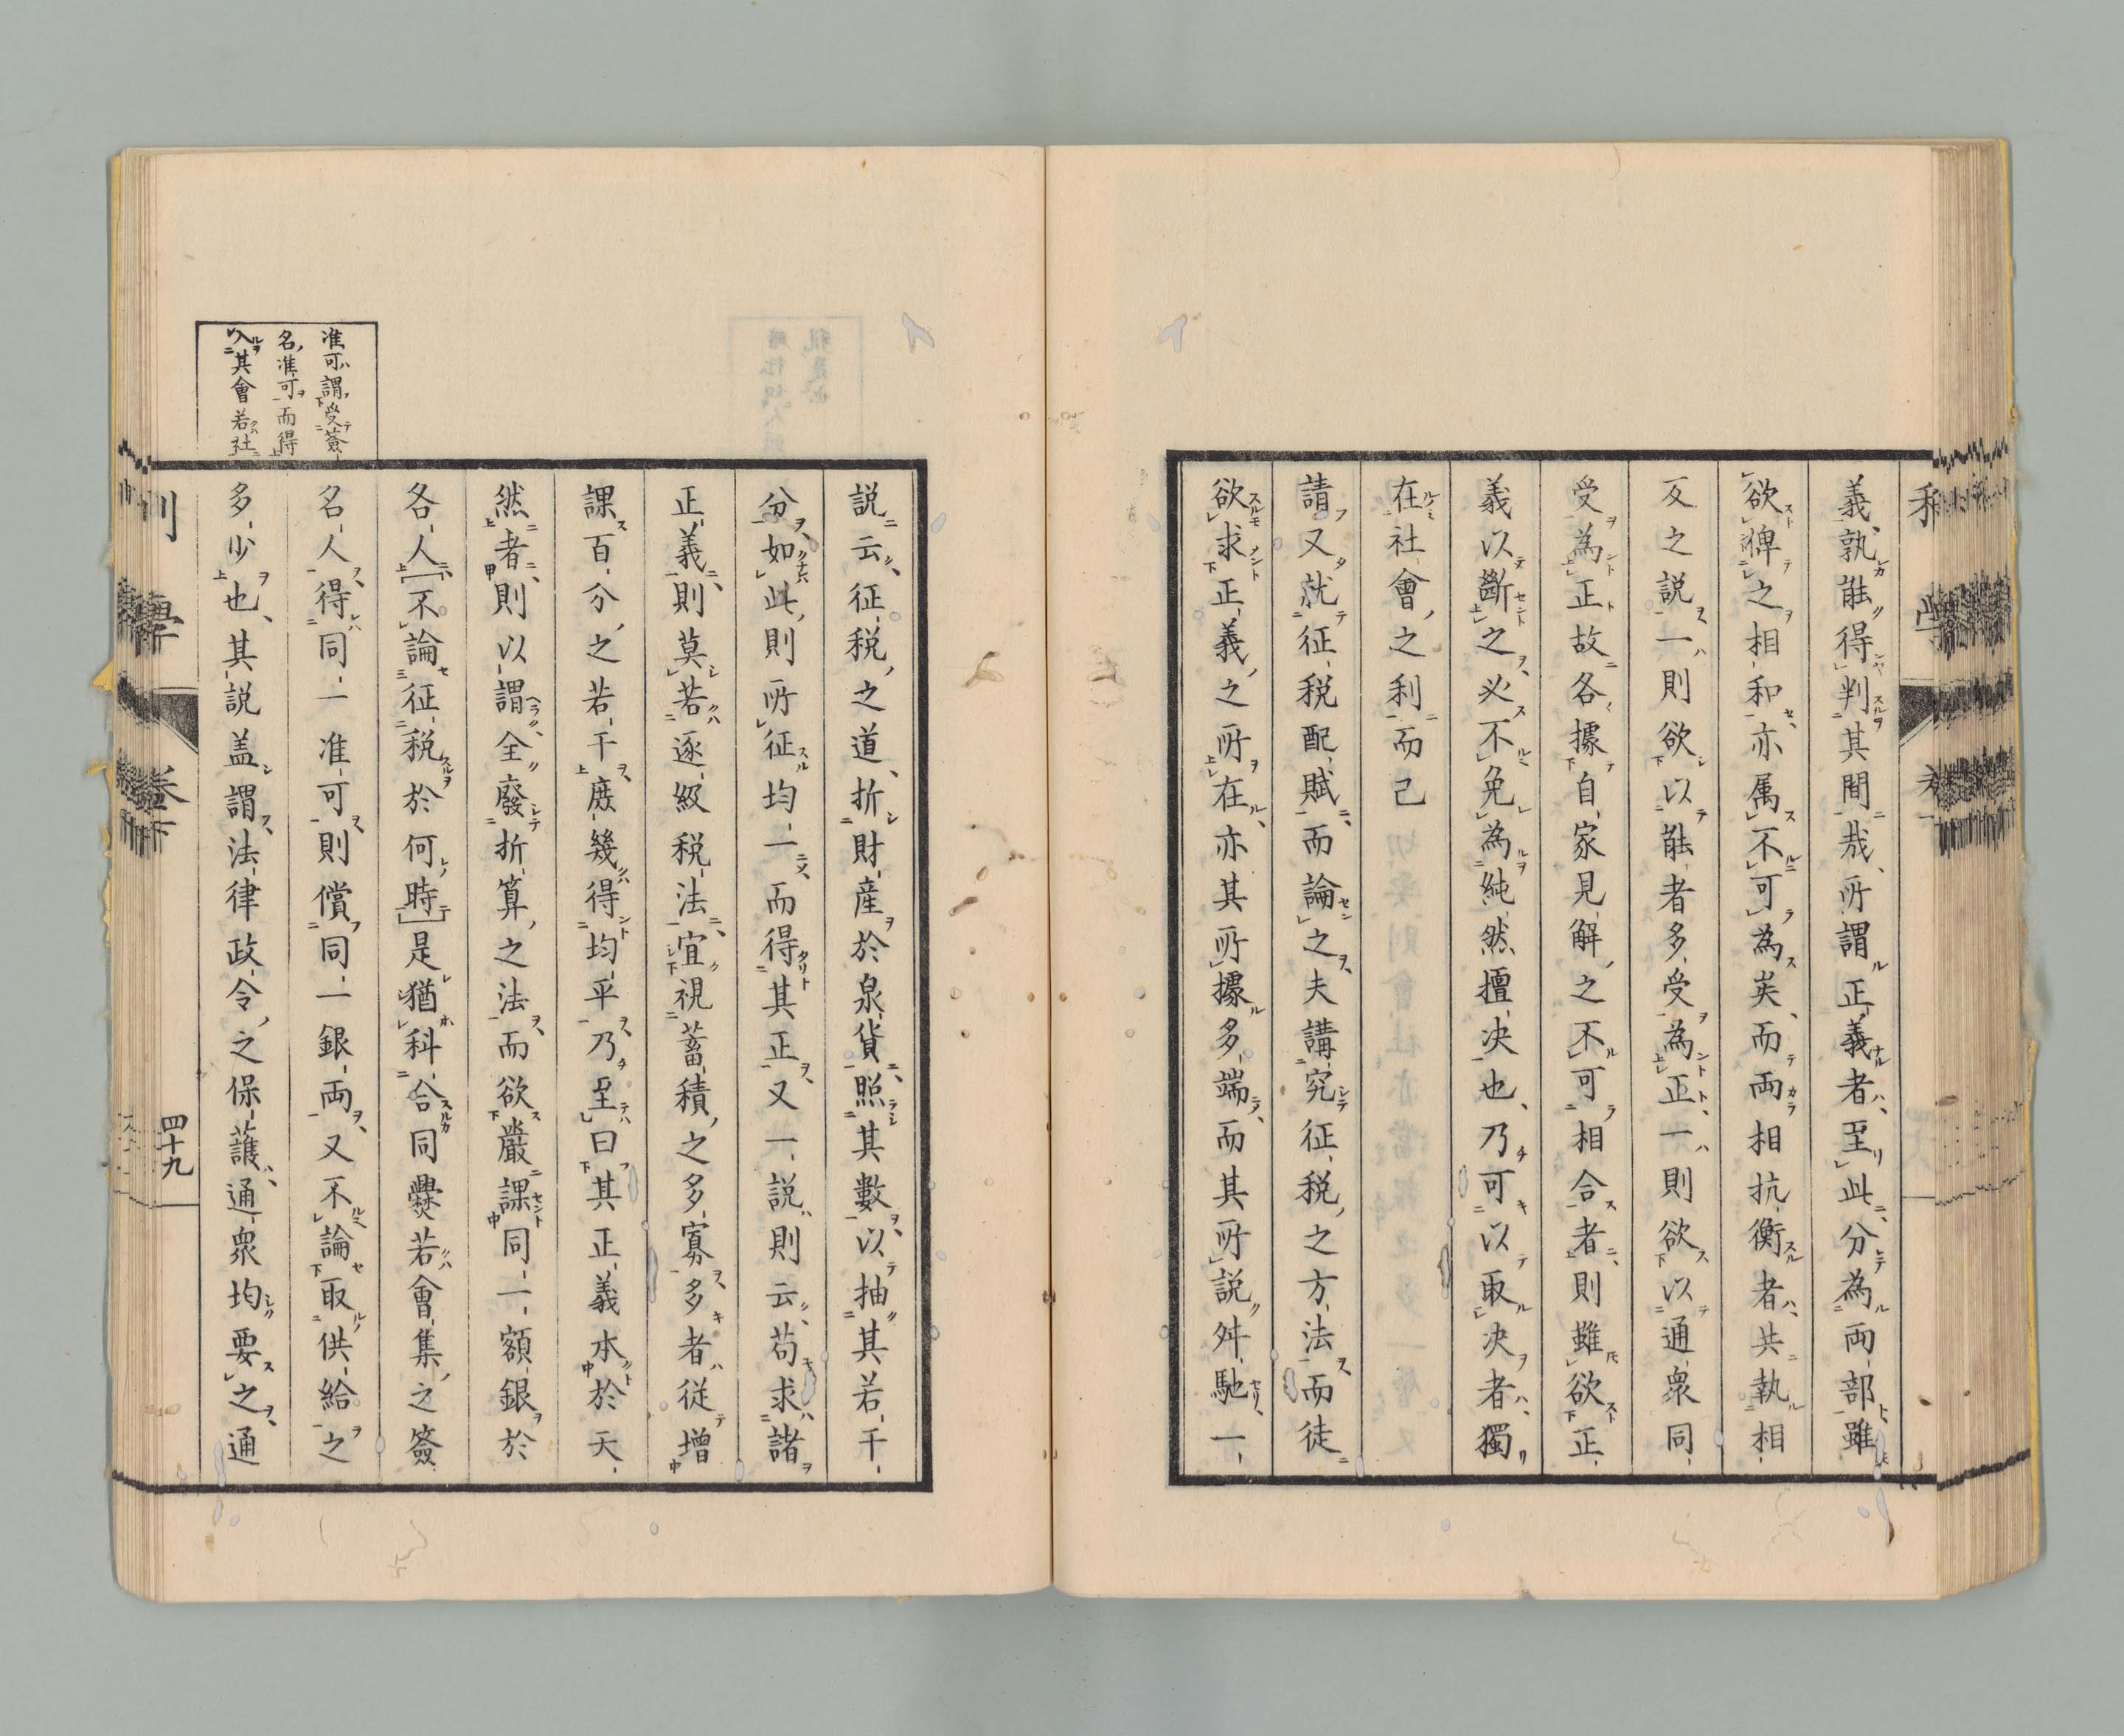 義孰能得判其間哉所謂正義者至此分為両部雖
欲俾之相和亦属不可為矣而両相抗衡者共執相
反之説一則欲以能者多受為正一則欲以通衆同
受為正故各據自家見解之不可相合者則雖欲正
義以断之必不免為純然擅决也乃可以取决者獨
在社會之利而已
請又就征税配賦而論之夫講究征税之方法而徒
欲求正義之所在亦其所據多端而其所説舛馳一
説云征税之道折財産於泉貨照其數以抽其若干
分如此則所征均一而得其正又一説則云苟求諸
正義則莫若逐級税法宜視蓄積之多寡多者従増
課百分之若干庶幾得均平乃至曰其正義本於天
然者則以謂全廢折算之法而欲嚴課同一額銀於
各人不論征税於何時是猶科合同爨若會集之簽
名人得同一准可則償同一銀両又不論取供給之
多少也其説盖謂法律政令之保護通衆均要之通
准可謂受簽
名准可而得
入其會若社
利
學
卷下
四十九